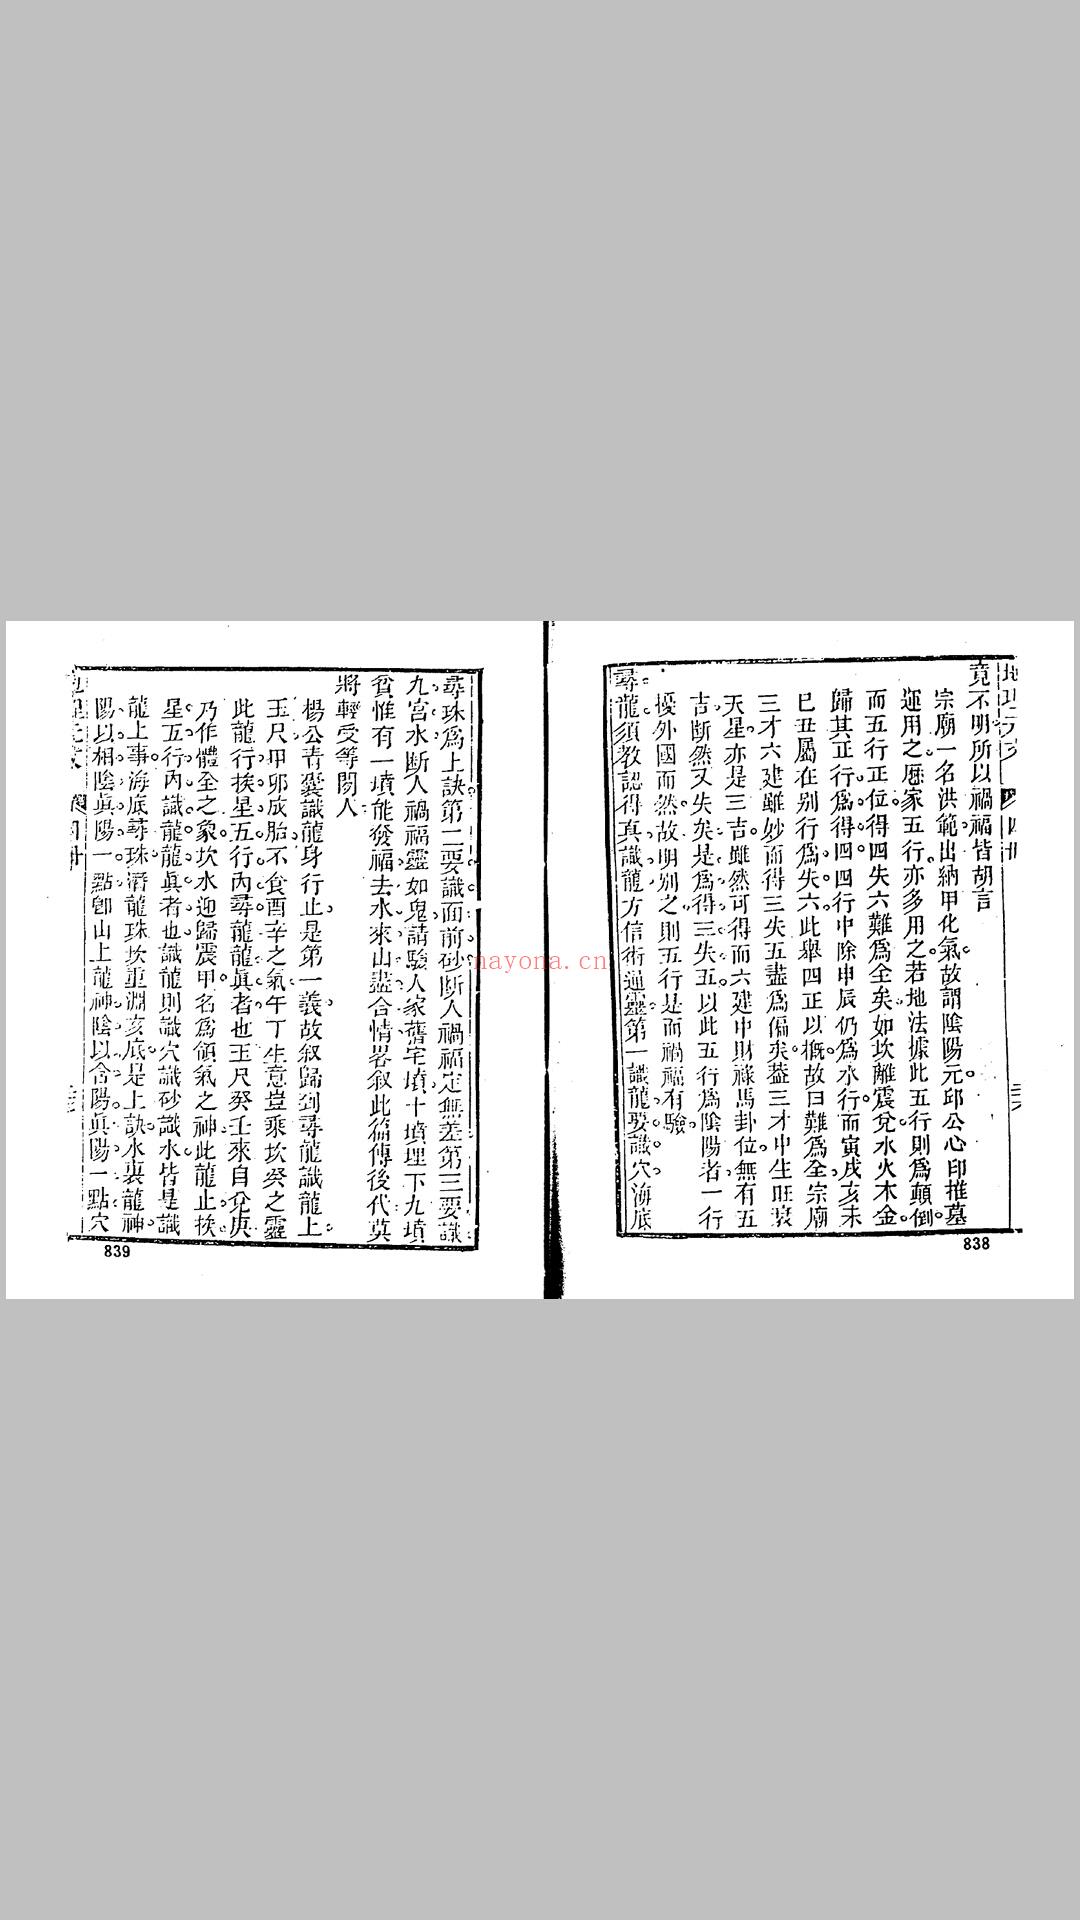 竟不明所以禍福皆胡言
宗廟一名洪範出納甲化氣故謂陰陽元邱公心印推墓
運用之曆家五行亦多用之若地法據此五行則為顛倒
而五行正位得四失六難為全矣如坎離震兌水火木金
歸其正行為得四四行中除申辰仍為水行而寅戌亥未
巳丑屬在别行為失六此舉四正以概故曰難為全宗廟
三才六建雖妙而得三失五盡為偏矣葢三才中生旺衰
天星亦是三吉雖然可得而六建中財祿馬卦位無有五
吉斷然又失矣是為得三失五以此五行為陰陽者一行
擾外國而然故明别之則五行是而禍福有驗
尋龍須教認得真識龍方信術通靈第一識龍要識穴海底
838
尋珠為上訣第二要識面前砂斷人禍福定無差第三要識
九宮水斷人禍福靈如鬼請驗人家舊宅墳十墳埋下九墳
貧惟有一墳能發福去水來山盡合情畧叙此篇傳後代莫
將輕受等閒人
楊公青囊識龍身行止是第一義故叙歸到尋龍識龍上
玉尺甲卯成胎不食酉辛之氣午丁生意豈乘坎癸之靈
此龍行挨星五行內尋龍龍眞者也玉尺癸壬來自兌庚
乃作體全之象坎水迎歸震甲名為領氣之神此龍止挨
星五行內識龍龍眞者也識龍則識穴識砂識水皆是識
龍上事海底尋珠潛龍珠坎重淵亥底是上訣水裏龍神
陽以相陰眞陽一點卽山上龍神陰以含陽眞陽一點穴
839
nayona.cn